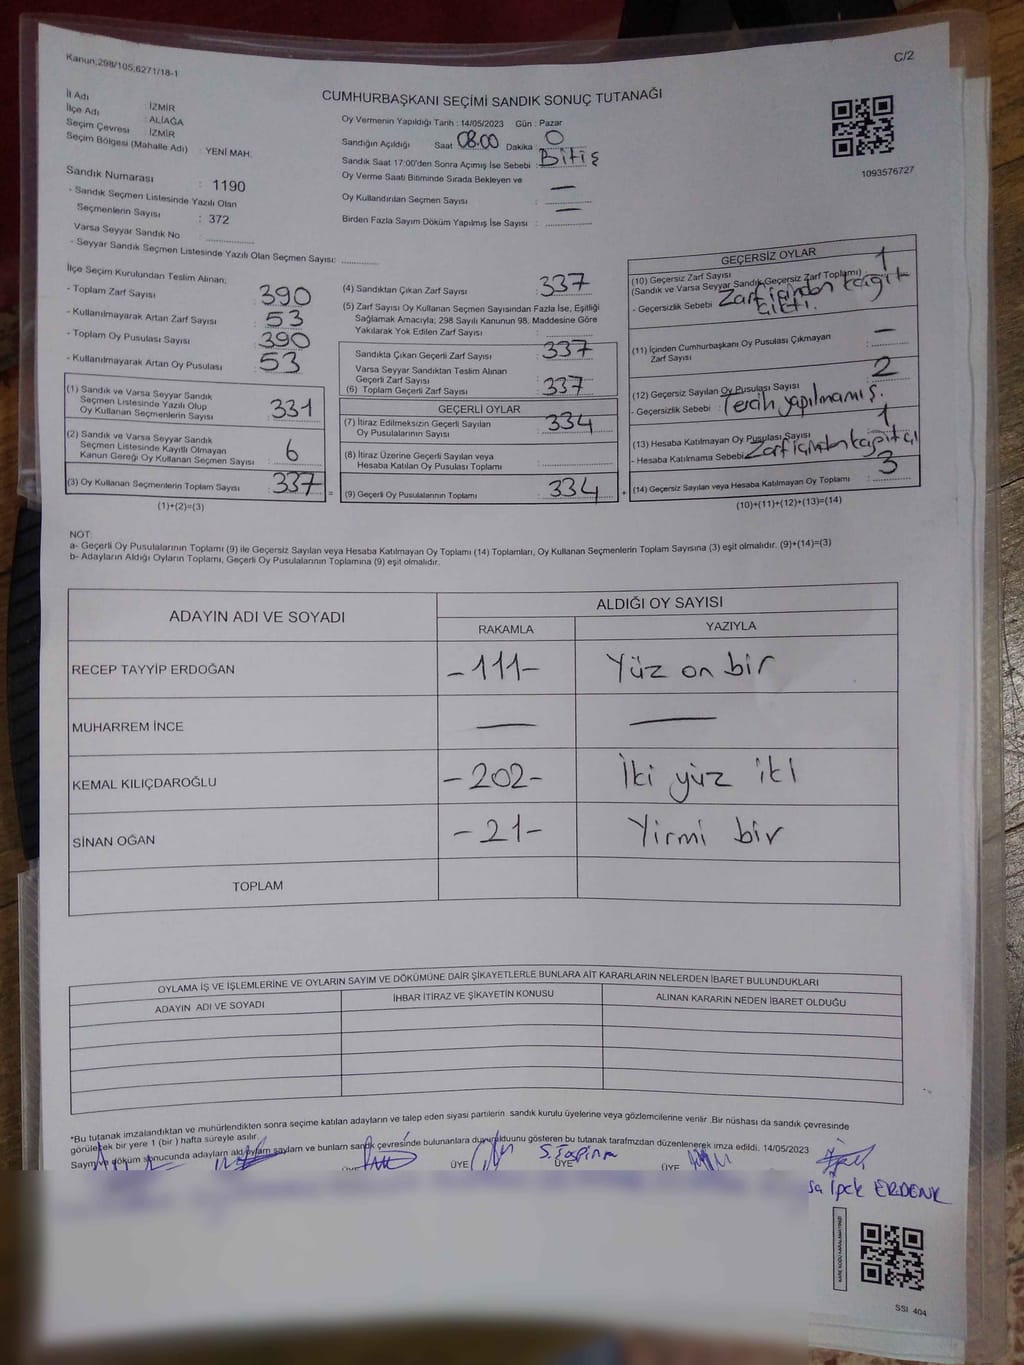 Kanun:298/105,6271/18-1
C/2
CUMHURBAŞKANI SEÇİMİ SANDIK SONUÇ TUTANAĞI
İl Adı : İZMİR
İlçe Adı : ALİAĞA
Seçim Çevresi : İZMİR
Seçim Bölgesi (Mahalle Adı) : YENİ MAH.
Sandık Numarası : 1190
- Sandık Seçmen Listesinde Yazılı Olan
Seçmenlerin Sayısı : 372
Varsa Seyyar Sandık No :
- Seyyar Sandık Seçmen Listesinde Yazılı Olan Seçmen Sayısı:
Oy Vermenin Yapıldığı Tarih : 14/05/2023 Gün : Pazar
Sandığın Açıldığı Saat 08.00 Dakika : 0
Sandık Saat 17:00'den Sonra Açımış İse Sebebi : Bitiş
Oy Verme Saati Bitiminde Sırada Bekleyen ve
Oy Kullandırılan Seçmen Sayısı : —
Birden Fazla Sayım Döküm Yapılmış İse Sayısı : —
1093576727
İlçe Seçim Kurulundan Teslim Alınan;
- Toplam Zarf Sayısı : 390
- Kullanılmayarak Artan Zarf Sayısı : 53
- Toplam Oy Pusulası Sayısı : 390
- Kullanılmayarak Artan Oy Pusulası : 53
(1) Sandık ve Varsa Seyyar Sandık
Seçmen Listesinde Yazılı Olup
Oy Kullanan Seçmenlerin Sayısı : 331
(2) Sandık ve Varsa Seyyar Sandık
Seçmen Listesinde Kayıtlı Olmayan
Kanun Gereği Oy Kullanan Seçmen Sayısı : 6
(3) Oy Kullanan Seçmenlerin Toplam Sayısı : 337
(1)+(2)=(3)
(4) Sandıktan Çıkan Zarf Sayısı : 337
(5) Zarf Sayısı Oy Kullanan Seçmen Sayısından Fazla İse, Eşitliği
Sağlamak Amacıyla; 298 Sayılı Kanunun 98. Maddesine Göre
Yakılarak Yok Edilen Zarf Sayısı :
Sandıkta Çıkan Geçerli Zarf Sayısı : 337
Varsa Seyyar Sandıktan Teslim Alınan
Geçerli Zarf Sayısı :
(6) Toplam Geçerli Zarf Sayısı : 337
GEÇERLİ OYLAR
(7) İtiraz Edilmeksizin Geçerli Sayılan
Oy Pusulalarının Sayısı : 334
(8) İtiraz Üzerine Geçerli Sayılan veya
Hesaba Katılan Oy Pusulası Toplamı :
(9) Geçerli Oy Pusulalarının Toplamı : 334
= +
GEÇERSİZ OYLAR
(10) Geçersiz Zarf Sayısı : 1
(Sandık ve Varsa Seyyar Sandık Geçersiz Zarf Toplamı)
- Geçersizlik Sebebi : Zarf içinden kağıt
(11) İçinden Cumhurbaşkanı Oy Pusulası Çıkmayan
Zarf Sayısı : —
(12) Geçersiz Sayılan Oy Pusulası Sayısı : 2
- Geçersizlik Sebebi : Tercih yapılmamış.
(13) Hesaba Katılmayan Oy Pusulası Sayısı : 1
- Hesaba Katılmama Sebebi: Zarf içinden
(14) Geçersiz Sayılan veya Hesaba Katılmayan Oy Toplamı : 3
(10)+(11)+(12)+(13)=(14)
NOT:
a- Geçerli Oy Pusulalarının Toplamı (9) ile Geçersiz Sayılan veya Hesaba Katılmayan Oy Toplamı (14) Toplamları, Oy Kullanan Seçmenlerin Toplam Sayısına (3) eşit olmalıdır. (9)+(14)=(3)
b- Adayların Aldığı Oyların Toplamı, Geçerli Oy Pusulalarının Toplamına (9) eşit olmalıdır.
ADAYIN ADI VE SOYADI
ALDIĞI OY SAYISI
RAKAMLA YAZIYLA
RECEP TAYYİP ERDOĞAN -111- Yüz on bir
MUHARREM İNCE — —
KEMAL KILIÇDAROĞLU -202- İki yüz iki
SİNAN OĞAN -21- Yirmi bir
TOPLAM
OYLAMA İŞ VE İŞLEMLERİNE VE OYLARIN SAYIM VE DÖKÜMÜNE DAİR ŞİKAYETLERLE BUNLARA AİT KARARLARIN NELERDEN İBARET BULUNDUKLARI
ADAYIN ADI VE SOYADI İHBAR İTİRAZ VE ŞİKAYETİN KONUSU ALINAN KARARIN NEDEN İBARET OLDUĞU
*Bu tutanak imzalandıktan ve mühürlendikten sonra seçime katılan adayların ve talep eden siyasi partilerin sandık kurulu üyelerine veya gözlemcilerine verilir .Bir nüshası da sandık çevresinde
görülecek bir yere 1 (bir ) hafta süreyle asılır.
Sayım ve döküm sonucunda adayların aldığı oyların sayıları ve bunların sandık çevresinde bulunanlara duyurulduunu gösteren bu tutanak tarafımzdan düzenlenerek imza edildi. 14/05/2023
ÜYE ÜYE ÜYE
İpek ERDENK
SSI 404